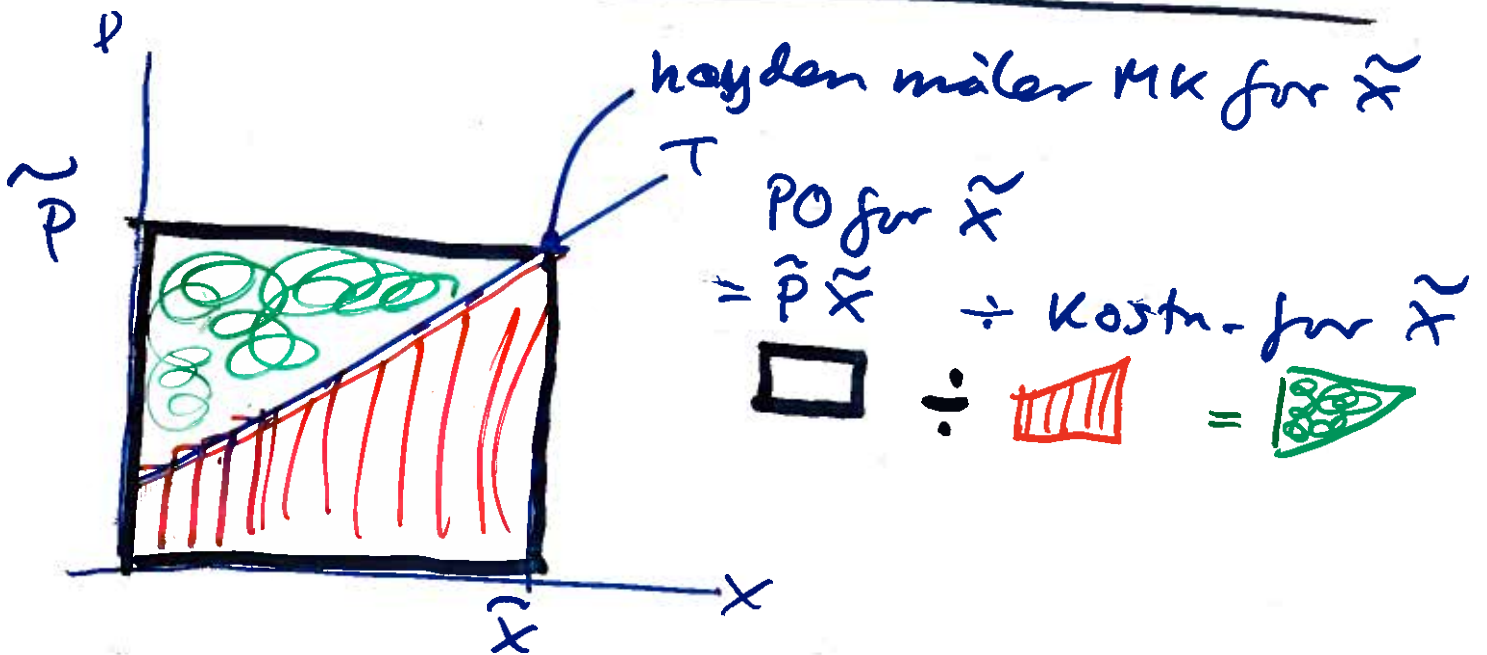 P
høyden måler MK for x̃
T
P̃
PO for x̃
= P̃ x̃ ÷ Kostn. for x̃
÷ =
x
x̃